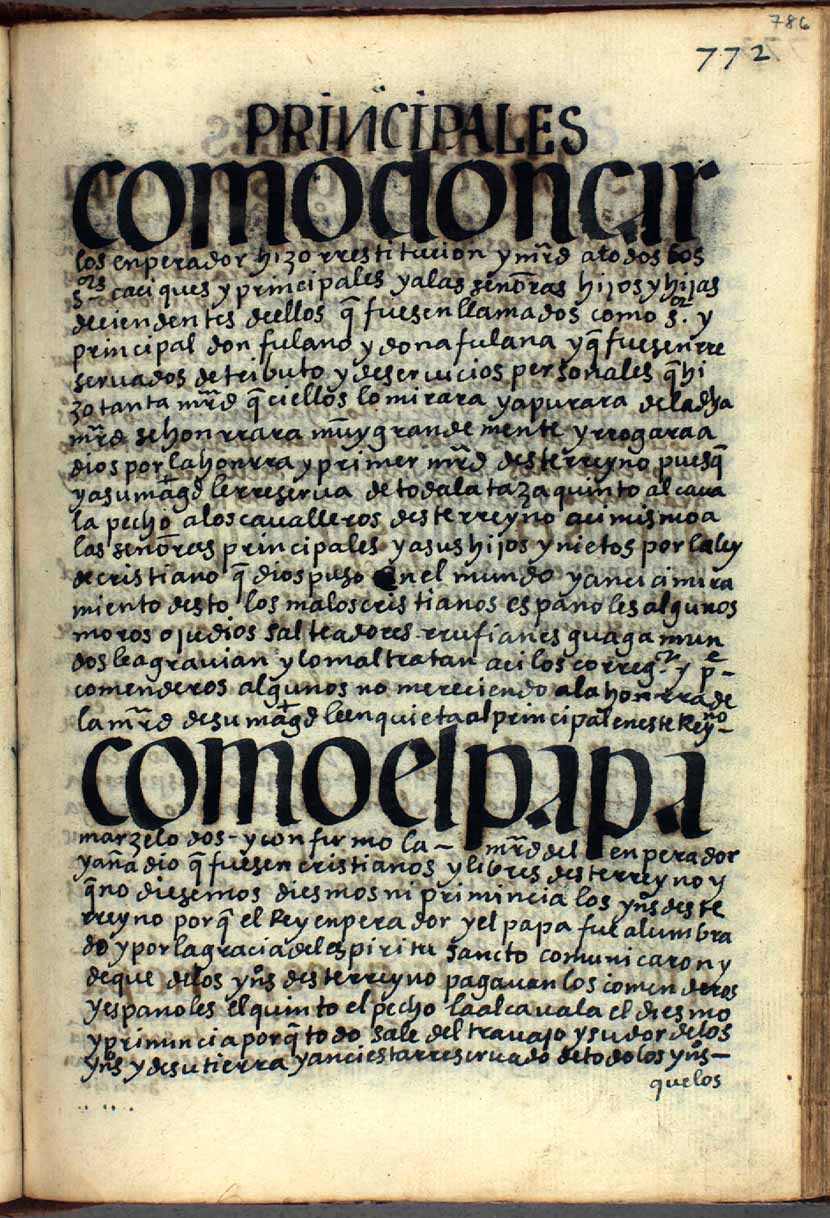 786
772
PRINCIPALES
comodoncar
los enperador hizo rrestitución y mrd a todos los
s.res caciques y principales y a las señoras hijos y hijas
deciendentes de ellos q̃ fuesen llamados como s.or y
principal don fulano y doña fulana y q̃ fuesen rre
servados de tributo y de servicios personales q̃ hi
zo tanta mrd q̃ ci ellos lo mirara y apurara de la dha
mrd se honrrara muy grandemente y rrogara a
dios por la honrra y primer mrd deste rreyno pues q̃
ya su magd le rreserva de toda la taza quinto alcava
la pecho a los cavalleros deste rreyno acimismo a
las señoras principales y a sus hijos y nietos por la ley
de cristiano q̃ dios puso en el mundo y anci a mira
miento desto los malos cristianos españoles algunos
moros o judios salteadores rrufianes guagamun
dos le agravian y lo maltratan aci los correg.or y p.e
comenderos algunos no mereciendo a la honrra de
la mrd de su magd le enquieta al principal en este Reyno
como el papa
marzelo dos y confirmo la mrd del enperador
y añadio q̃ fuesen cristianos y libres deste rreyno y
q̃ no diesemos diesmos ni primincia los yn̄s deste
rreyno porq̃ el Rey enperador y el papa fue alumbra
do y por la gracia del espiritu sancto comunicaron y
de que de los yn̄s deste rreyno pagavan los comenderos
y españoles el quinto el pecho la alcavala el diesmo
y primincia porq̃ todo sale del travajo y sudor de los
yn̄s y de su tierra y anci estar reservado de todo los yn̄s
que los